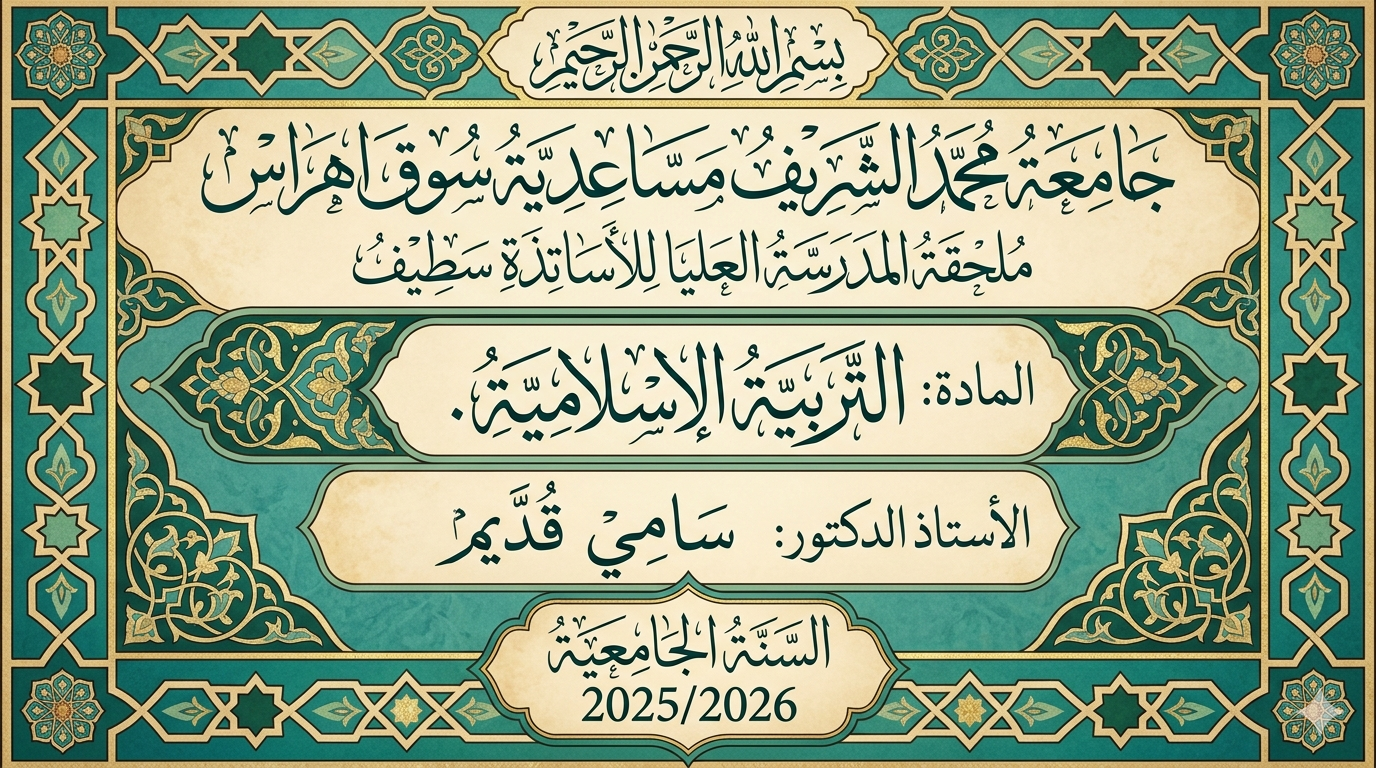 بِسْمِ اللهِ الرَّحْمَنِ الرَّحِيْمِ
جَامِعَةُ مُحَمَّدُ الشَّرِيفُ مَسَّاعِدِيَّةُ سُوق اهْرَاسْ
مُلحَقَةُ المَدَرَسَّةُ العَليَا لِلأَسَاتِذَةِ سَطِيفُ
المادة: التَّرْبِيَّةُ الإِسْلَامِيَّةِ.
الأستاذ الدكتور: سَامِيْ قُدَّيم
السَّنَّةُ الجَامِعِيَّةُ
2025/2026